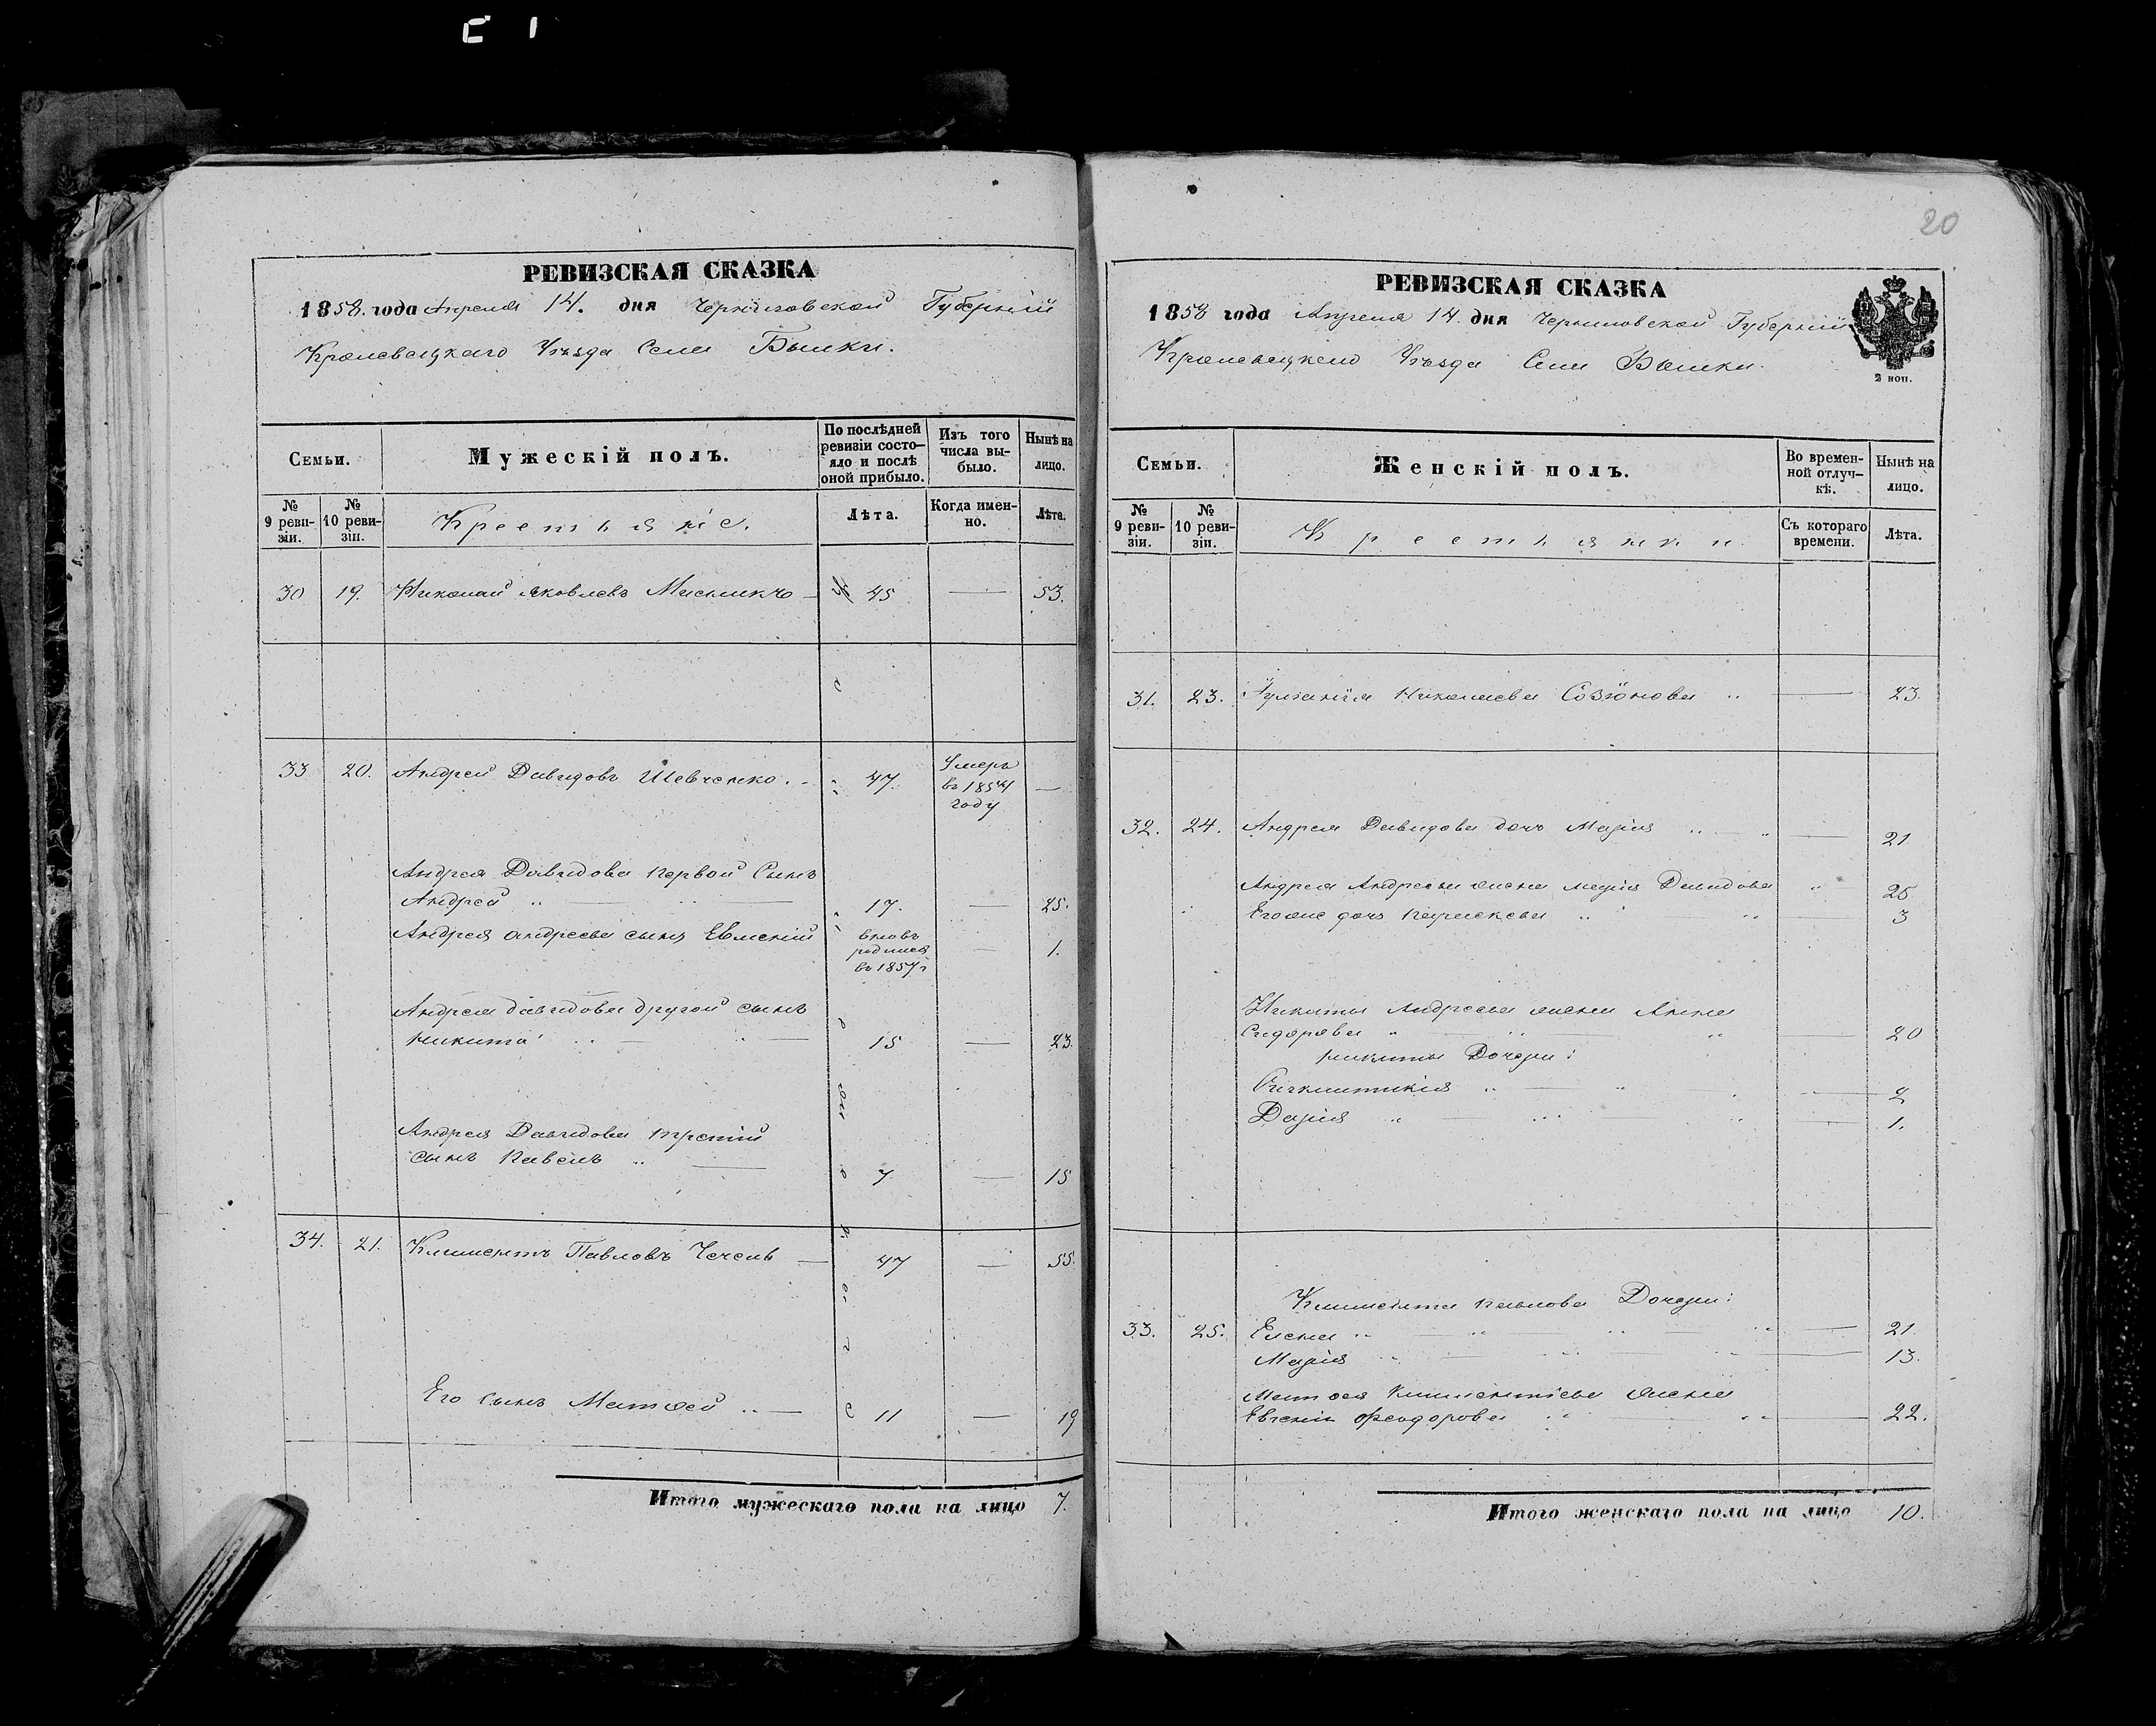 20
РЕВИЗСКАЯ СКАЗКА
1858. года Апреля 14. дня Черниговской Губерніи
Кролевецкаго Уѣзда Села Былки.
Семьи.
Мужескій полъ.
По послѣдней ревизіи состо—яло и послѣ оной прибыло.
Изъ того числа вы-было.
Нынѣ на лицо.
№ 9 реви-зіи.
№ 10 реви-зіи.
Крестьяне.
Лѣта.
Когда имен-но.
Лѣта.
30 19. Николай Яковлевъ — 45 — 53.
33 20. Андрей Давидовъ Шевченко. — 47. Умеръ въ 1854 году —
Андрея Давидова первой Сынъ
Андрей 17. — 25.
Андрея Андреева сынъ Евменій вновь родился въ 1857 г — 1.
Андрея Давидова другой сынъ
Никита 15 — 23.
Андрея Давидова третій
сынъ Павелъ 7 — 15
34. 21. Климентъ Павловъ Чечель — 47 — 55.
Его сынъ Матѳей — 11 — 19
Итого мужескаго пола на лицо 7.
РЕВИЗСКАЯ СКАЗКА
1858 года Апреля 14. дня Черниговской Губерніи
Кролевецкаго Уѣзда Села Былки.
2 коп.
Семьи.
Женскій полъ.
Во времен-ной отлуч-кѣ.
Нынѣ на лицо.
№ 9 реви-зіи.
№ 10 реви-зіи.
Крестьянки.
Съ котораго времени.
Лѣта.
31. 23. Николаева — 23.
32. 24. Андрея Давидова дочь Марія — 21
Андрея Андреева жена Марія Давидова 25
Егоже дочь Параскева — 3
Никиты Андреева жена Анна
Сидорова — 20
Никиты Дочери:
— 2
Дарія — 1.
Климента Павлова Дочери:
33. 25. Елена — 21.
Марія — 13.
Матѳея Климентіева жена
Евгенія Ѳеодорова — 22.
Итого женскаго пола на лицо 10.